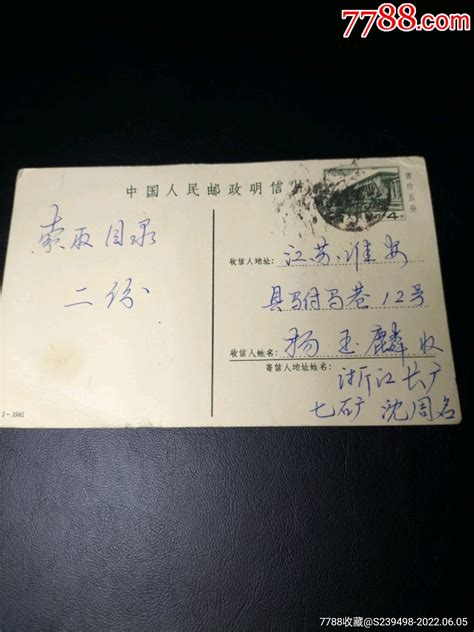 7788.com
中国人民邮政明信片
售价五分
4
索取目录
二份
收信人地址:
江苏.淮安
县驸马巷12号
收信人姓名:
杨玉麟收
寄信人地址姓名:
浙江长广
七矿 沈周名
1-1981
7788收藏@S239498-2022.06.05